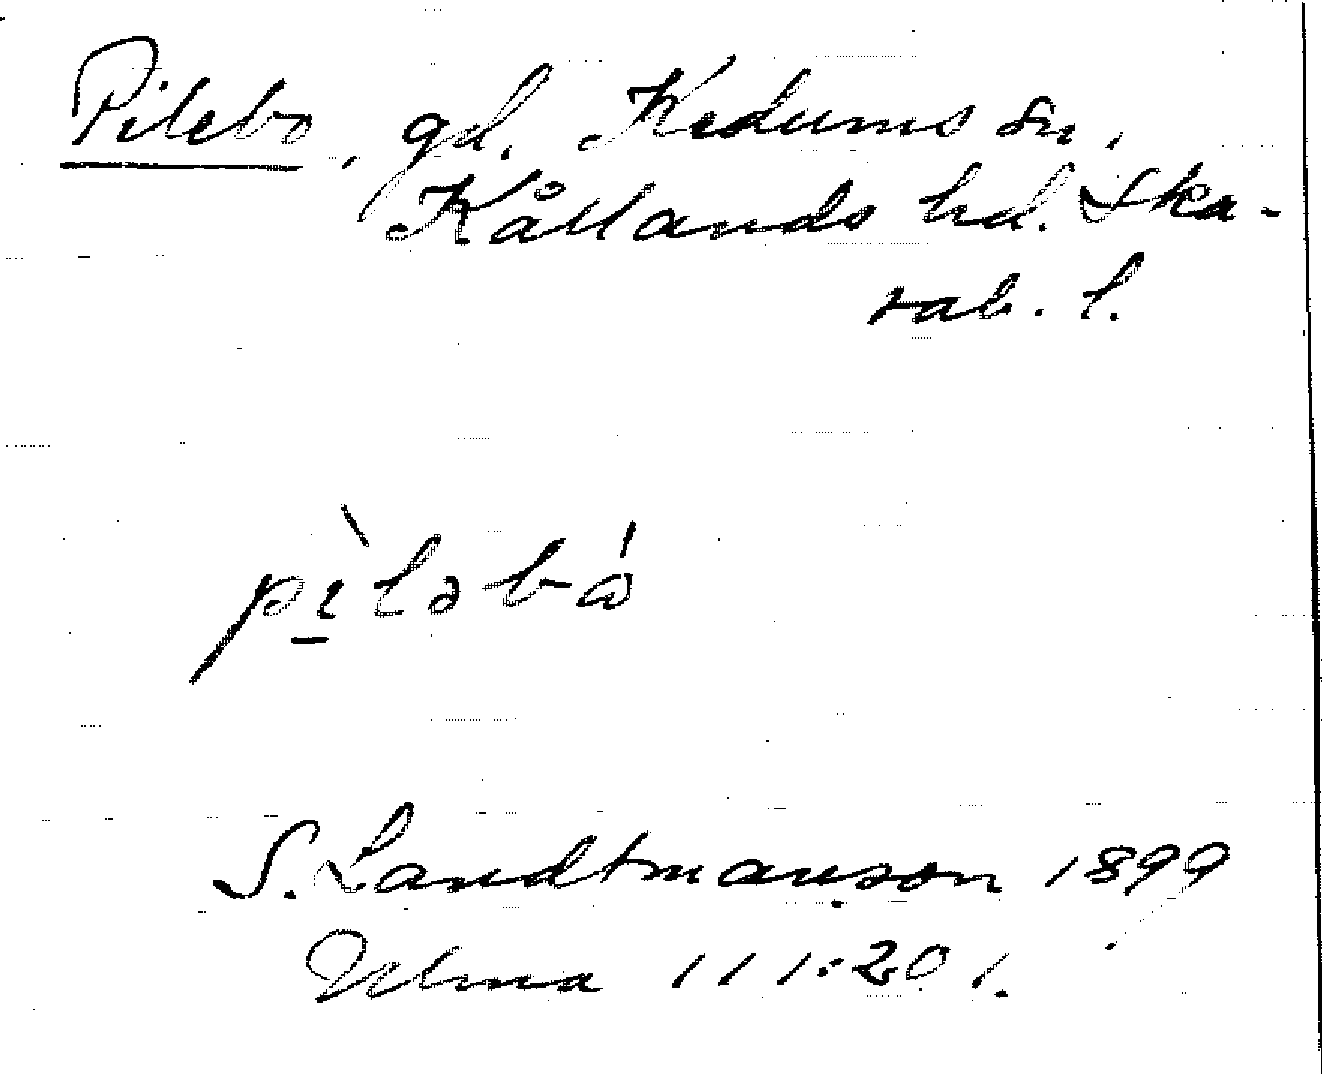 Pilebo, gd. Kedums sn,
Kållands hd. Ska-
rab. l.
pìləbó
S. Landtmanson 1899
Ulma 111:20 1.